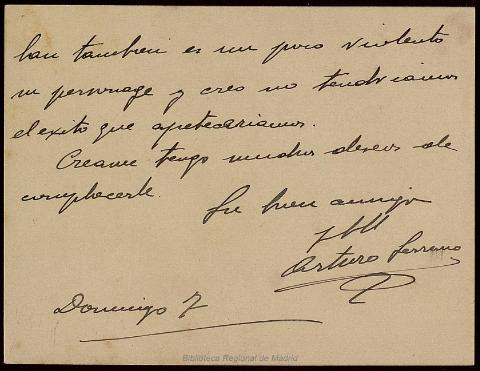 ban tambien es un poco violento
mi personage y creo no tendriamos
el exito que apetecariamos.
Creame tengo muchos deseos de
complacerle.
Su buen amigo
Arturo Serrano
Domingo 7
Biblioteca Regional de Madrid